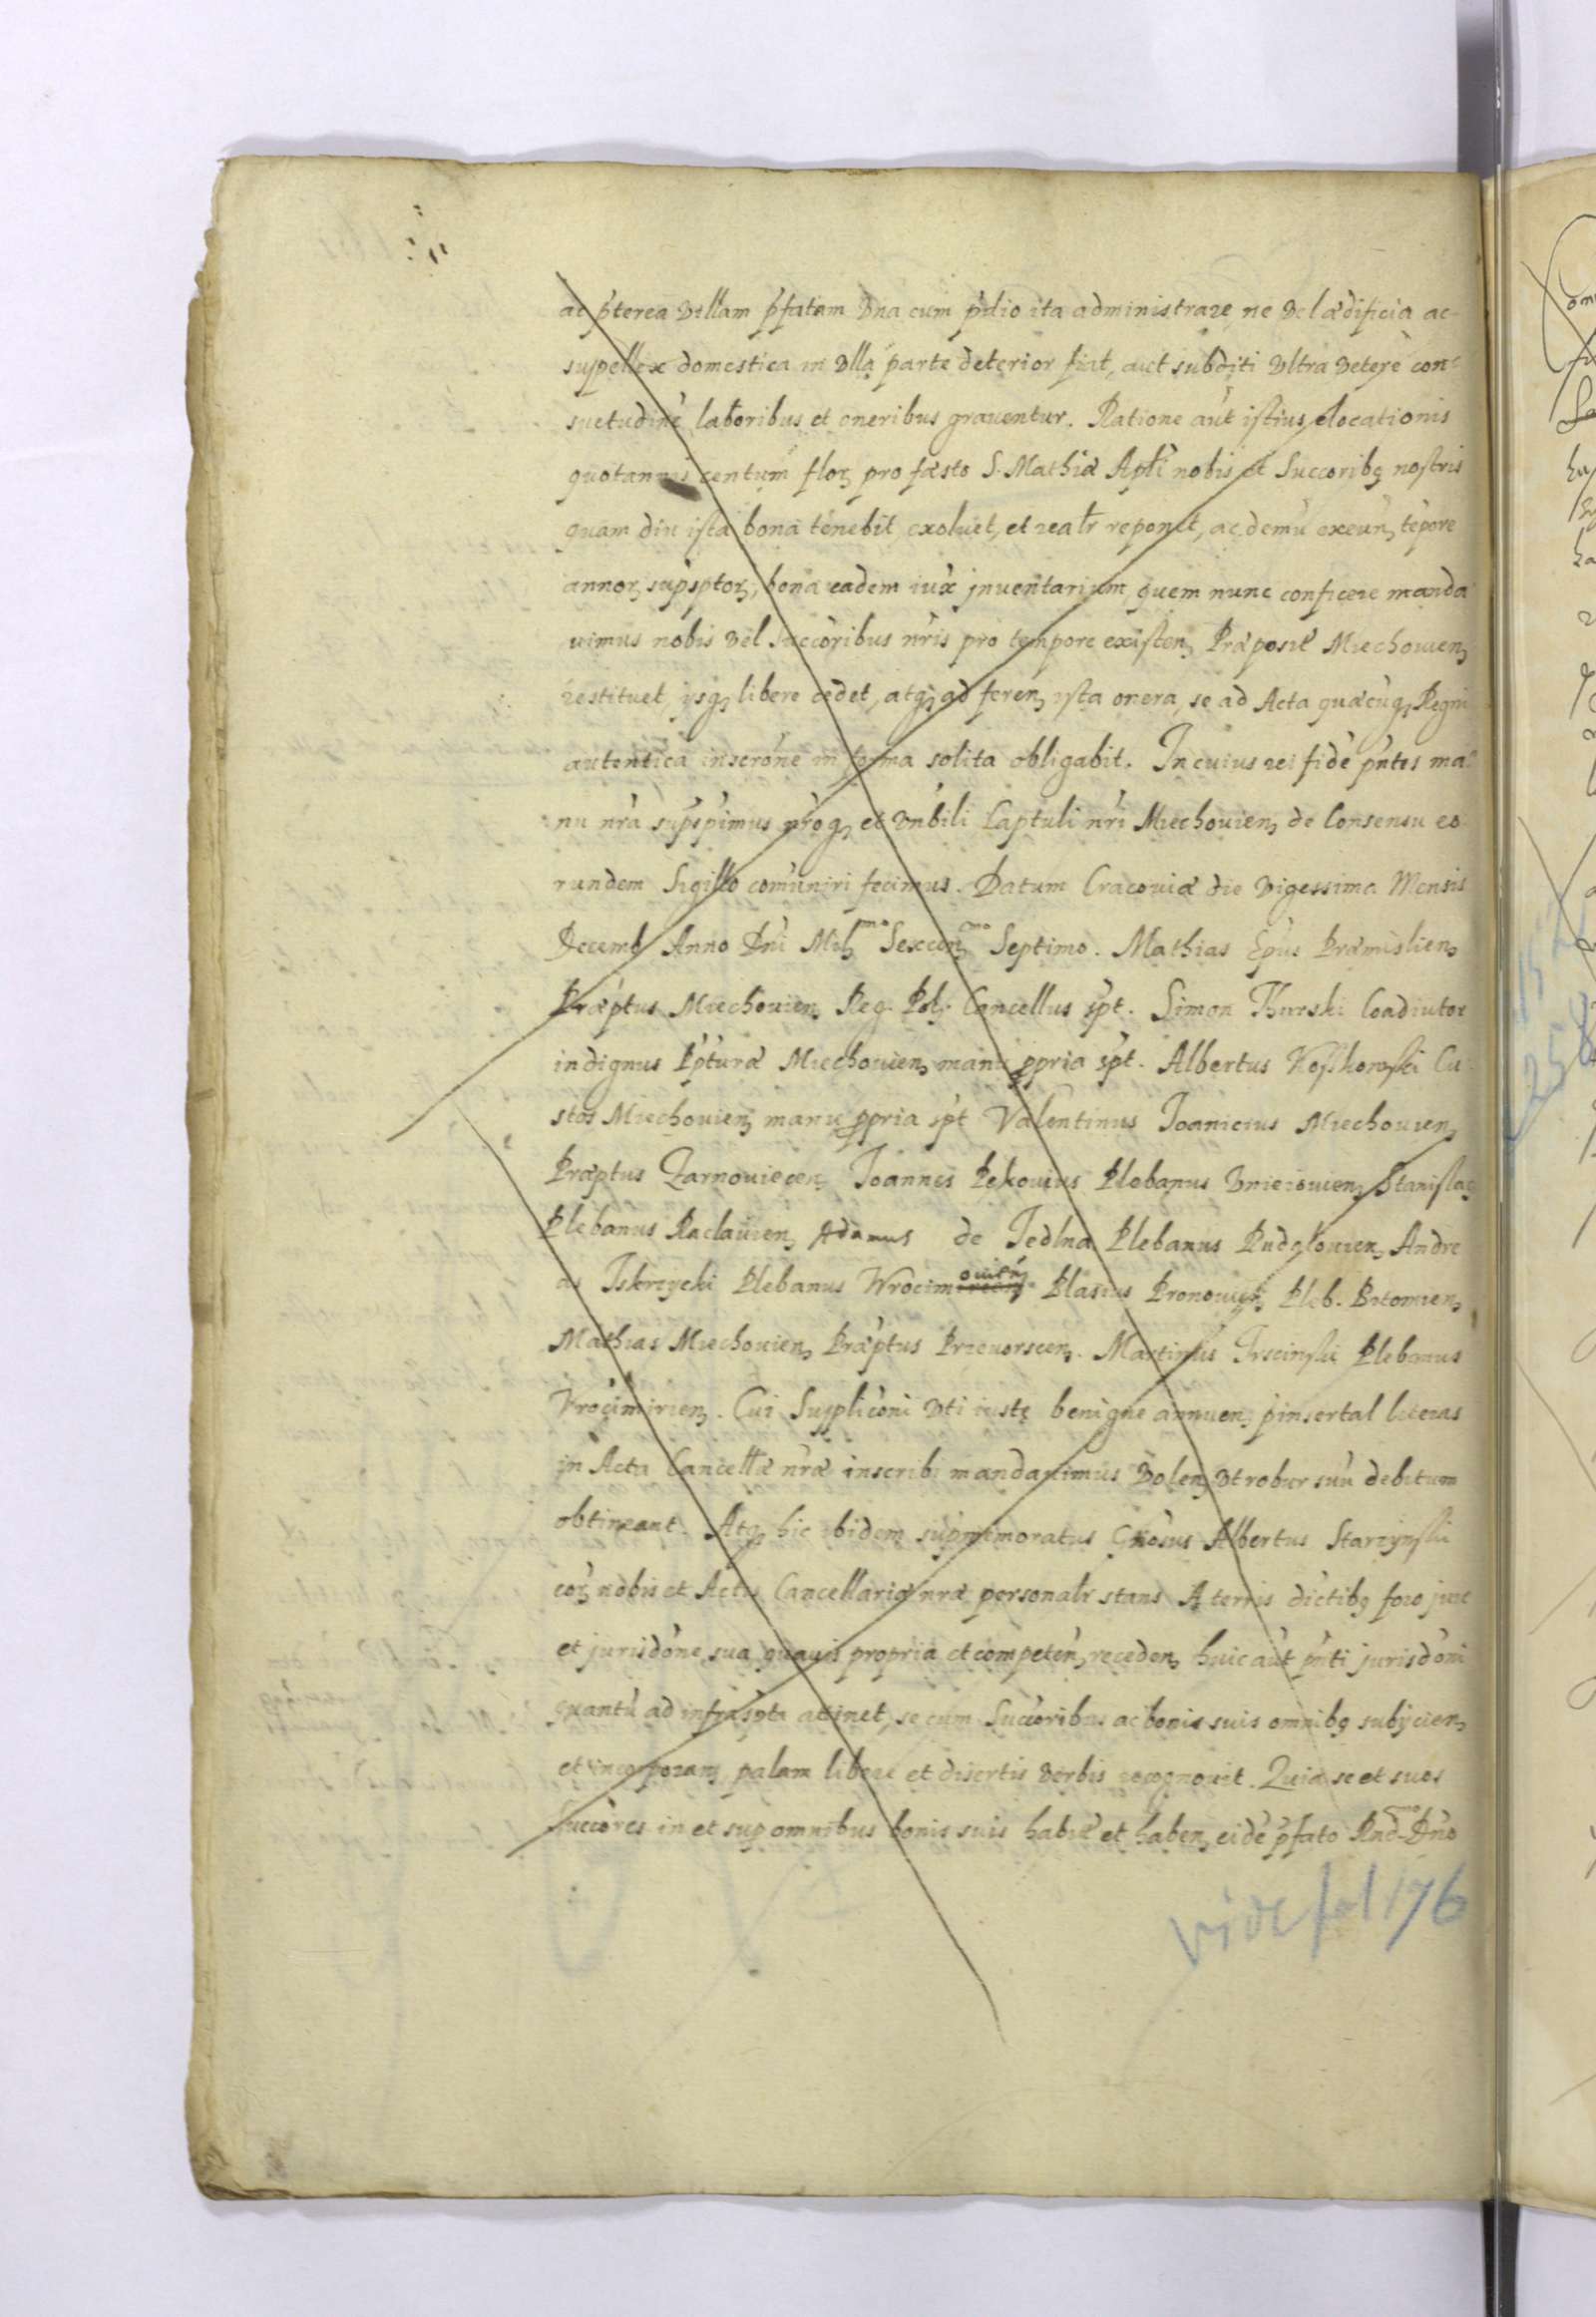 ac p̃terea villam p̃fatam Vna cum p̃dio ita administrare, ne Vel ædificia ac
suppellex domestica in Vlla parte deterior fiat, aut subditi Vltra Vetere con-
suetudinẽ laboribus et oneribus grauentur. Ratione aũt istius elocationis
quotannis centum floꝝ pro fæsto S. Mathiæ Apl̃i nobis et Succoribꝫ nostris
quam diu ista bona tenebit, exoluet, et realr̃ reponet, ac demũ exeunꝫ tẽpore
annoꝝ sup̃sptoꝝ, bona eadem iux̃ jnuentarium quem nunc conficere manda
uimus nobis Vel Succoribus nr̃is pro tempore existenꝫ Præposit̃ Miechouienꝫ
restituet, ijsqꝫ libere cedet, atqꝫ ad ferenꝫ ista onera, se ad Acta quæcũqꝫ Regni
autentica inscrõne in forma solita obligabit. In cuius rei fidẽ p̃ntes ma-
nu nr̃a sup̃sp̃imus nr̃oqꝫ et Vñbili Captuli nr̃i Miechouienꝫ de Consensu eo
rundem Sigillo comuniri fecimus. Datum Cracouiæ die Vigessima Mensis
Decemb Anno Dñi Mill̃mo Sexcenꝫmo Septimo. Mathias Ep̃us Præmislienꝫ
Præptus Miechouienꝫ Reg. Pol. Cancellus sp̃t. Simon Thurski Coadiutor
indignus P̃pturæ Miechouienꝫ manu ppria sp̃t. Albertus Kosskowski Cu
stos Miechouienꝫ manu ppria sp̃t Valentinus Joanicius Miechouienꝫ
Præptus Zarnouiecenꝫ Joannes Pekouius Plebanus Vnieiouienꝫ Stanislaꝫ
Plebanus Raclauienꝫ Adamus de Jedlna Plebanus Vudzlouienꝫ Andre
as Iskrzycki Plebanus Wrocimouienꝫ Blasius Pronouiꝫ Pleb. Bitomienꝫ
Mathias Miechouienꝫ Præptus Przeuorscenꝫ. Martinus Trscinski Plebanus
Vrocimirienꝫ. Cui Suppliconi Vti iustę benigne annuenꝫ pinsertas literas
in Acta Cancell̃æ nr̃æ inscribi mandauimus Volenꝫ Vt robur suũ debitum
obtineant. Atqꝫ hic ibidem sup̃memoratus Gnosus Albertus Starzynski
corꝫ nobis et Actis Cancellariæ nræ personalr̃ stans A terris dictibꝫ foro jure
et jurisdõne sua quauis propria et competenꝫ recedenꝫ huic aũt p̃nti jurisdõni
quantũ ad infrasp̃ta attinet, se cum Succoribus ac bonis suis omnibꝫ subijcienꝫ
et incorporanꝫ palam libere et disertis Verbis recognouit. Quia se et suos
Succores in et sup omnibus bonis suis habit̃ et habenꝫ eidẽ p̃fato Rnd-mo Dño
vide fol 176